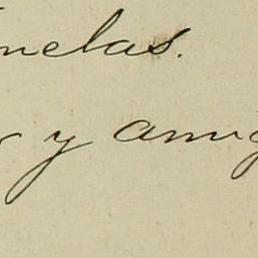 nelas.
y amig